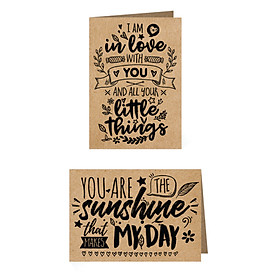 I AM
in love
WITH
YOU
AND ALL YOUR
little
things
YOU ARE THE
sunshine
that MAKES MY DAY